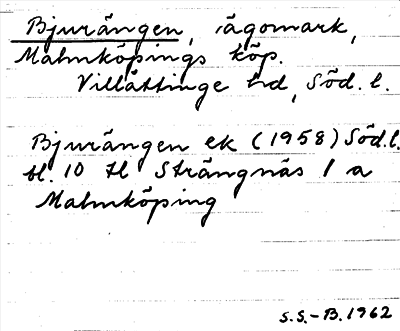 Bjurängen, ägomark,
Malmköpings köp.
Villåttinge hd, Söd. l.
Bjurängen ek (1958) Söd. l.
bl. 10 H Strängnäs 1 a
Malmköping
S.S.-B. 1962